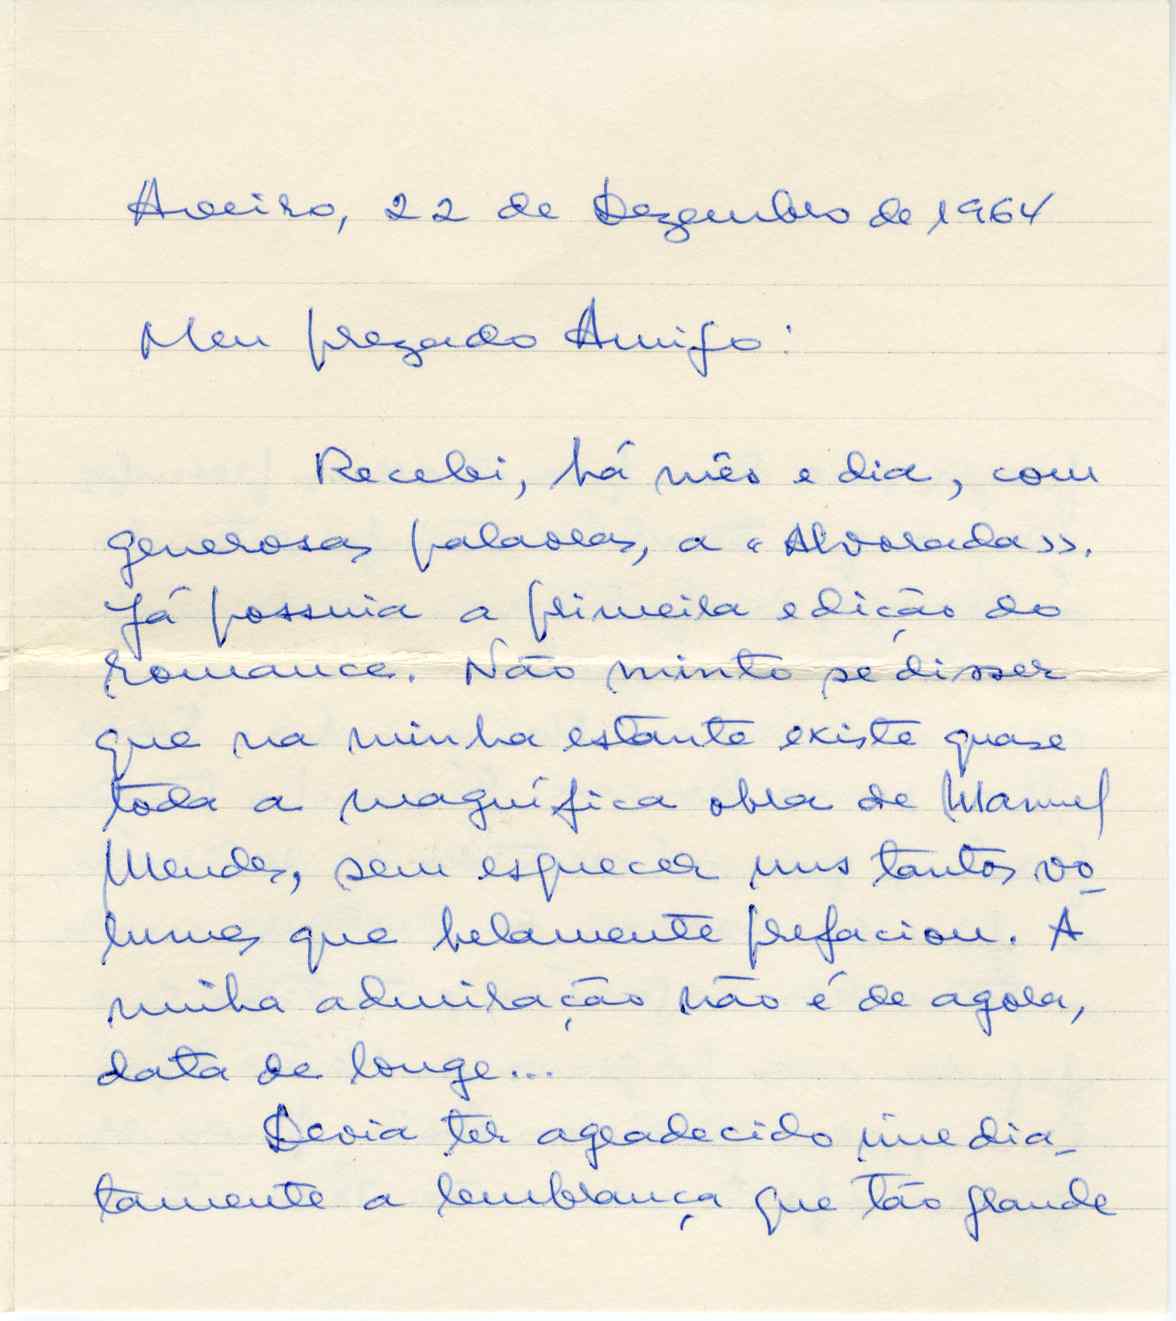 Aveiro, 22 de Dezembro de 1964
Meu prezado Amigo:
Recebi, há mês e dia, com
generosas palavras, a «Alvorada».
Já possuia a primeira edição do
romance. Não minto se disser
que na minha estante existe quase
toda a magnífica obra de Manuel
Mendes, sem esquecer uns tantos vo-
lumes que belamente prefaciou. A
minha admiração não é de agora,
data de longe...
Devia ter agradecido imedia-
tamente a lembrança que tão grande